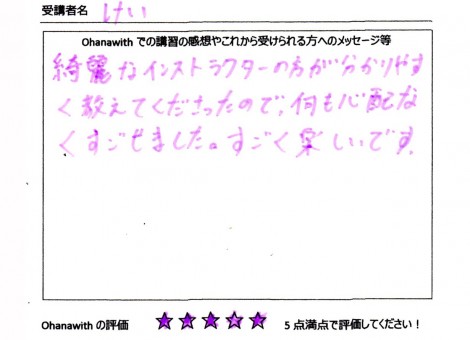 受講者名 けい
Ohanawith での講習の感想やこれから受けられる方へのメッセージ等
綺麗なインストラクターの方が分かりやす
く教えてくださったので、何も心配な
くすごせました。すごく楽しいです。
Ohanawith の評価 ★★★★★ 5点満点で評価してください！